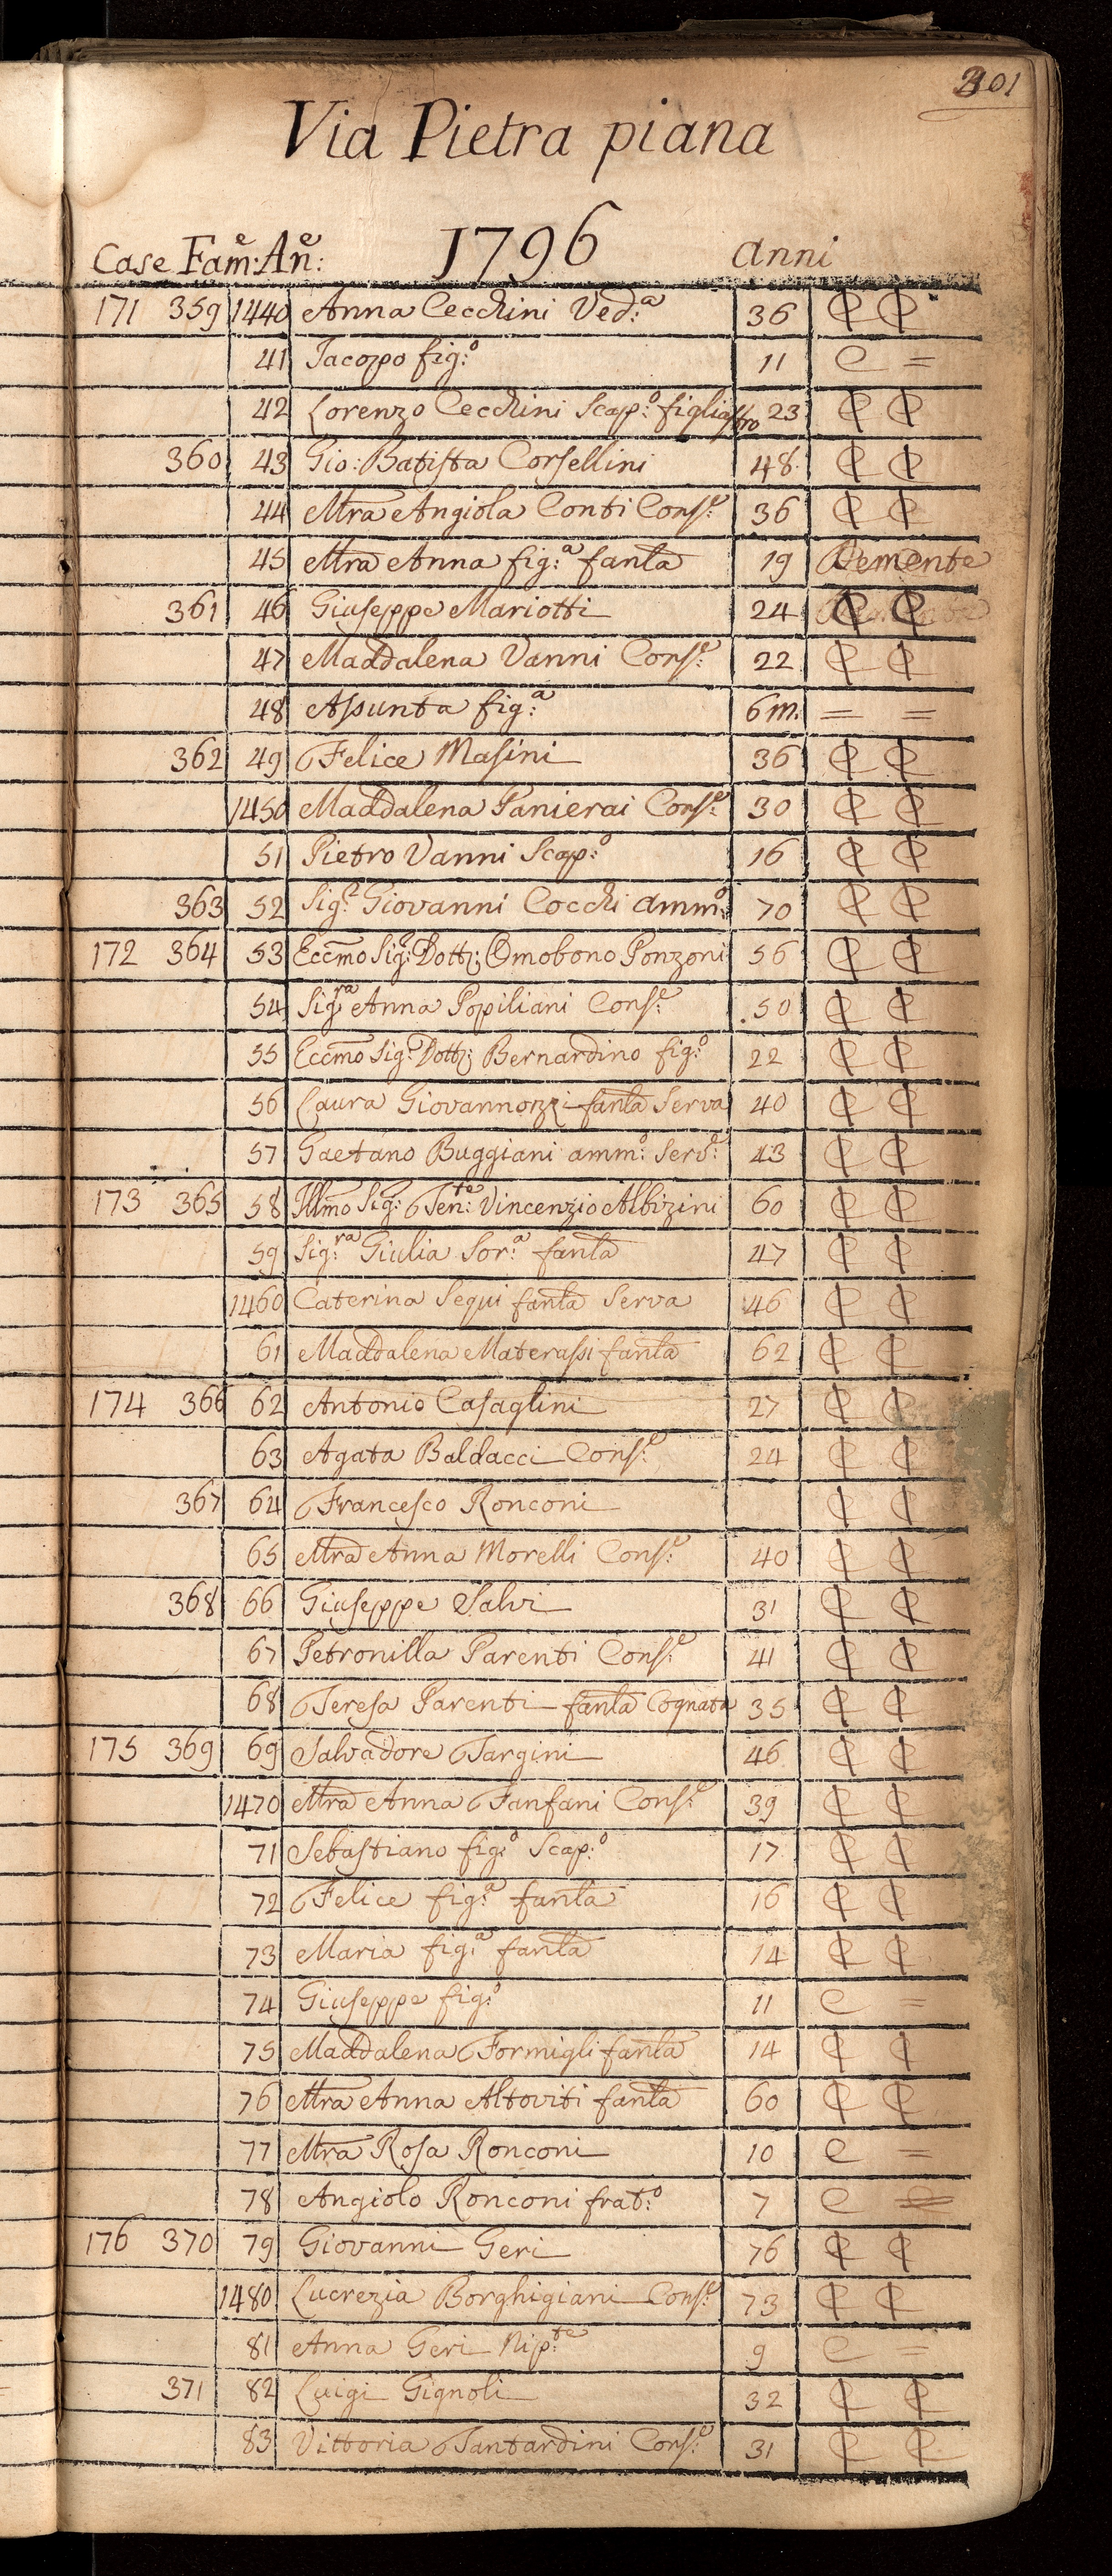 201
Via Pietra piana
Case Fam:e An:e 1796 anni
171 359 1440 Anna Cecchini Ved:a 36 C C
41 Jacopo fig:o 11 C =
42 Lorenzo Cecchini Scap:o figliastro 23 C C
360 43 Gio: Batista Corsellini 48 C C
44 Mra Angiola Conti Cons:e 36 C C
45 Mra Anna fig:a fanla 19 Demente
361 46 Giuseppe Mariotti 24 C C
47 Maddalena Vanni Cons:e 22 C C
48 Assunta fig:a 6 m. = =
362 49 Felice Masini 36 C C
1450 Maddalena Panierai Cons:e 30 C C
51 Pietro Vanni Scap:o 16 C C
363 52 Sig:r Giovanni Cocchi amm:o 70 C C
172 364 53 Eccmo Sig:r Dott: Omobono Ponzoni 56 C C
54 Sig:ra Anna Popiliani Cons:e 50 C C
55 Eccmo Sig:r Dott: Bernardino fig:o 22 C C
56 Laura Giovannozzi fanla Serva 40 C C
57 Gaetano Buggiani amm:o Serv:e 43 C C
173 365 58 Illmo Sig: Ten:te Vincenzio Albizini 60 C C
59 Sig:ra Giulia Sor:a fanla 47 C C
1460 Caterina Segui fanla Serva 46 C C
61 Maddalena Materassi fanla 62 C C
174 366 62 Antonio Casaglini 27 C C
63 Agata Baldacci Cons:e 24 C C
367 64 Francesco Ronconi C C
65 Mra Anna Morelli Cons:e 40 C C
368 66 Giuseppe Salvi 31 C C
67 Petronilla Parenti Cons:e 41 C C
68 Teresa Parenti fanla Cognata 35 C C
175 369 69 Salvadore Targini 46 C C
1470 Mra Anna Fanfani Cons:e 39 C C
71 Sebastiano fig:o Scap:o 17 C C
72 Felice fig:a fanla 16 C C
73 Maria fig:a fanla 14 C C
74 Giuseppe fig:o 11 C =
75 Maddalena Formigli fanla 14 C C
76 Mra Anna Altoviti fanla 60 C C
77 Mra Rosa Ronconi 10 C =
78 Angiolo Ronconi frat:o 7 C =
176 370 79 Giovanni Geri 76 C C
1480 Lucrezia Borghigiani Cons:e 73 C C
81 Anna Geri Nip:te 9 C =
371 82 Luigi Gignoli 32 C C
83 Vittoria Tantardini Cons:e 31 C C